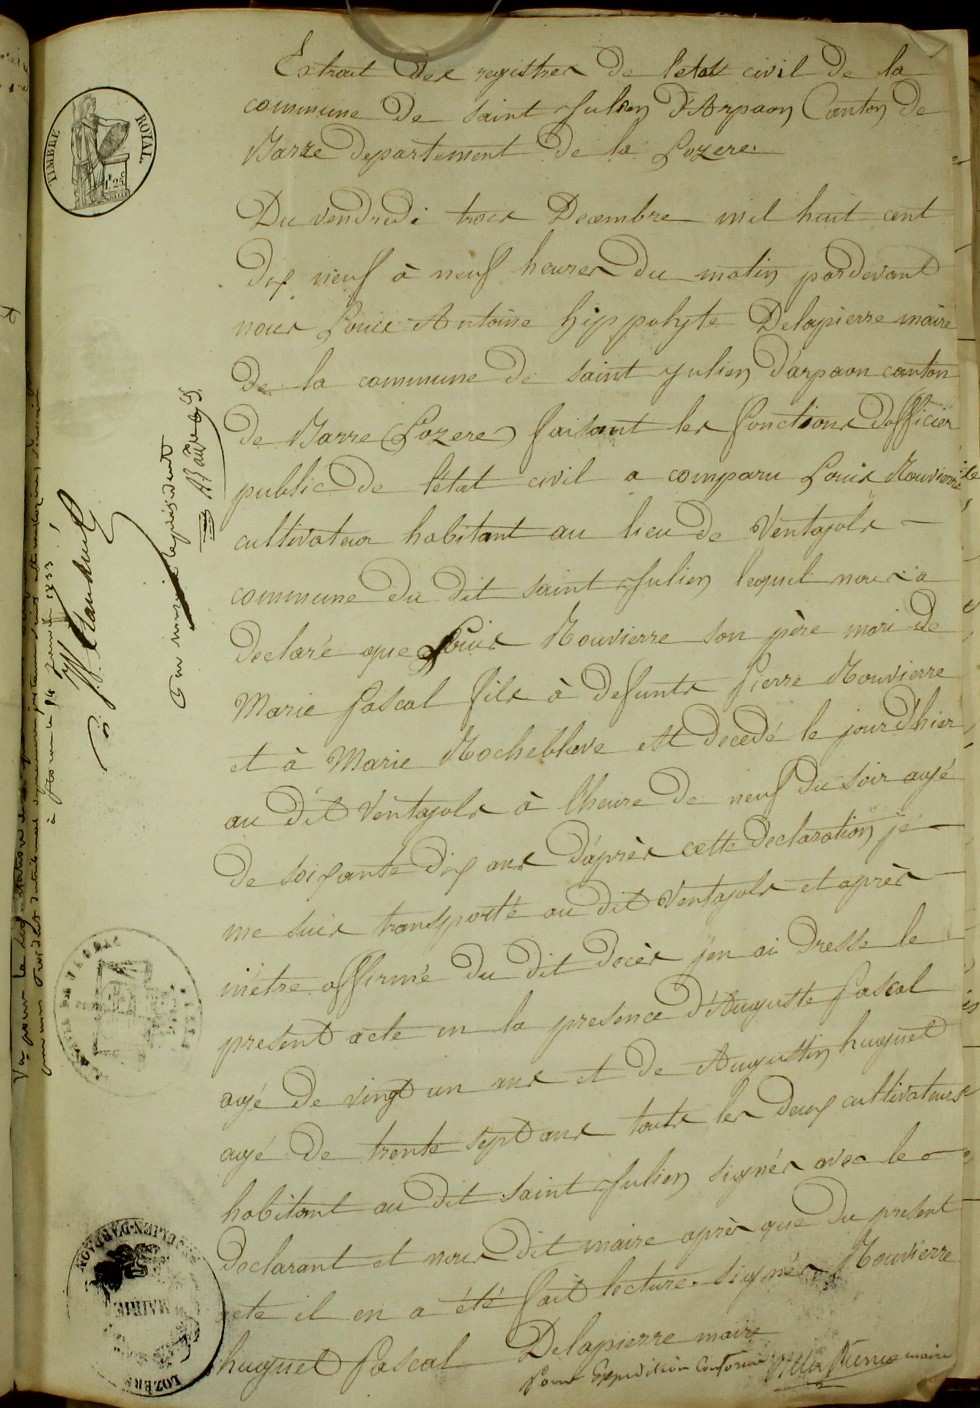 Extrait des registres de l'etat civil de la
commune de saint Julien D'Arpaon Canton de
Barre departement de la Lozere.
Du vendredi trois Decembre mil huit cent
dix neuf à neuf heures du matin pardevant
nous Louis Antoine hippolyte Delapierre maire
de la commune de saint Julien d'arpaon canton
de Barre (Lozere) faisant les fonctions d'officier
public de l'etat civil a comparu Louis Rouvierre
cultivateur habitant au lieu de Ventajols
commune du dit saint Julien lequel nous a
declaré que Louis Rouvierre son père mari de
Marie Pascal fils à defunts pierre Rouvierre
et à Marie Rocheblave est decedé le jour d'hier
au dit Ventajols à l'heure de neuf du soir agé
de soixante dix ans d'après cette declaration je
me suis transporté au dit Ventajols et après
m'etre affirmé du dit decès j'en ai dressé le
present acte en la presence d'Auguste pascal
agé de vingt un ans et de Augustin huguet
agé de trente sept ans touts les deux cultivateurs
habitant au dit saint Julien signés avec le
declarant et nous dit maire après que du present
acte il en a été fait lecture. signés Rouvierre
huguet Pascal Delapierre maire
Pour Expedition Conforme Delapierre maire
TIMBRE ROYAL
1f 25c
MAIRIE
LOZERE